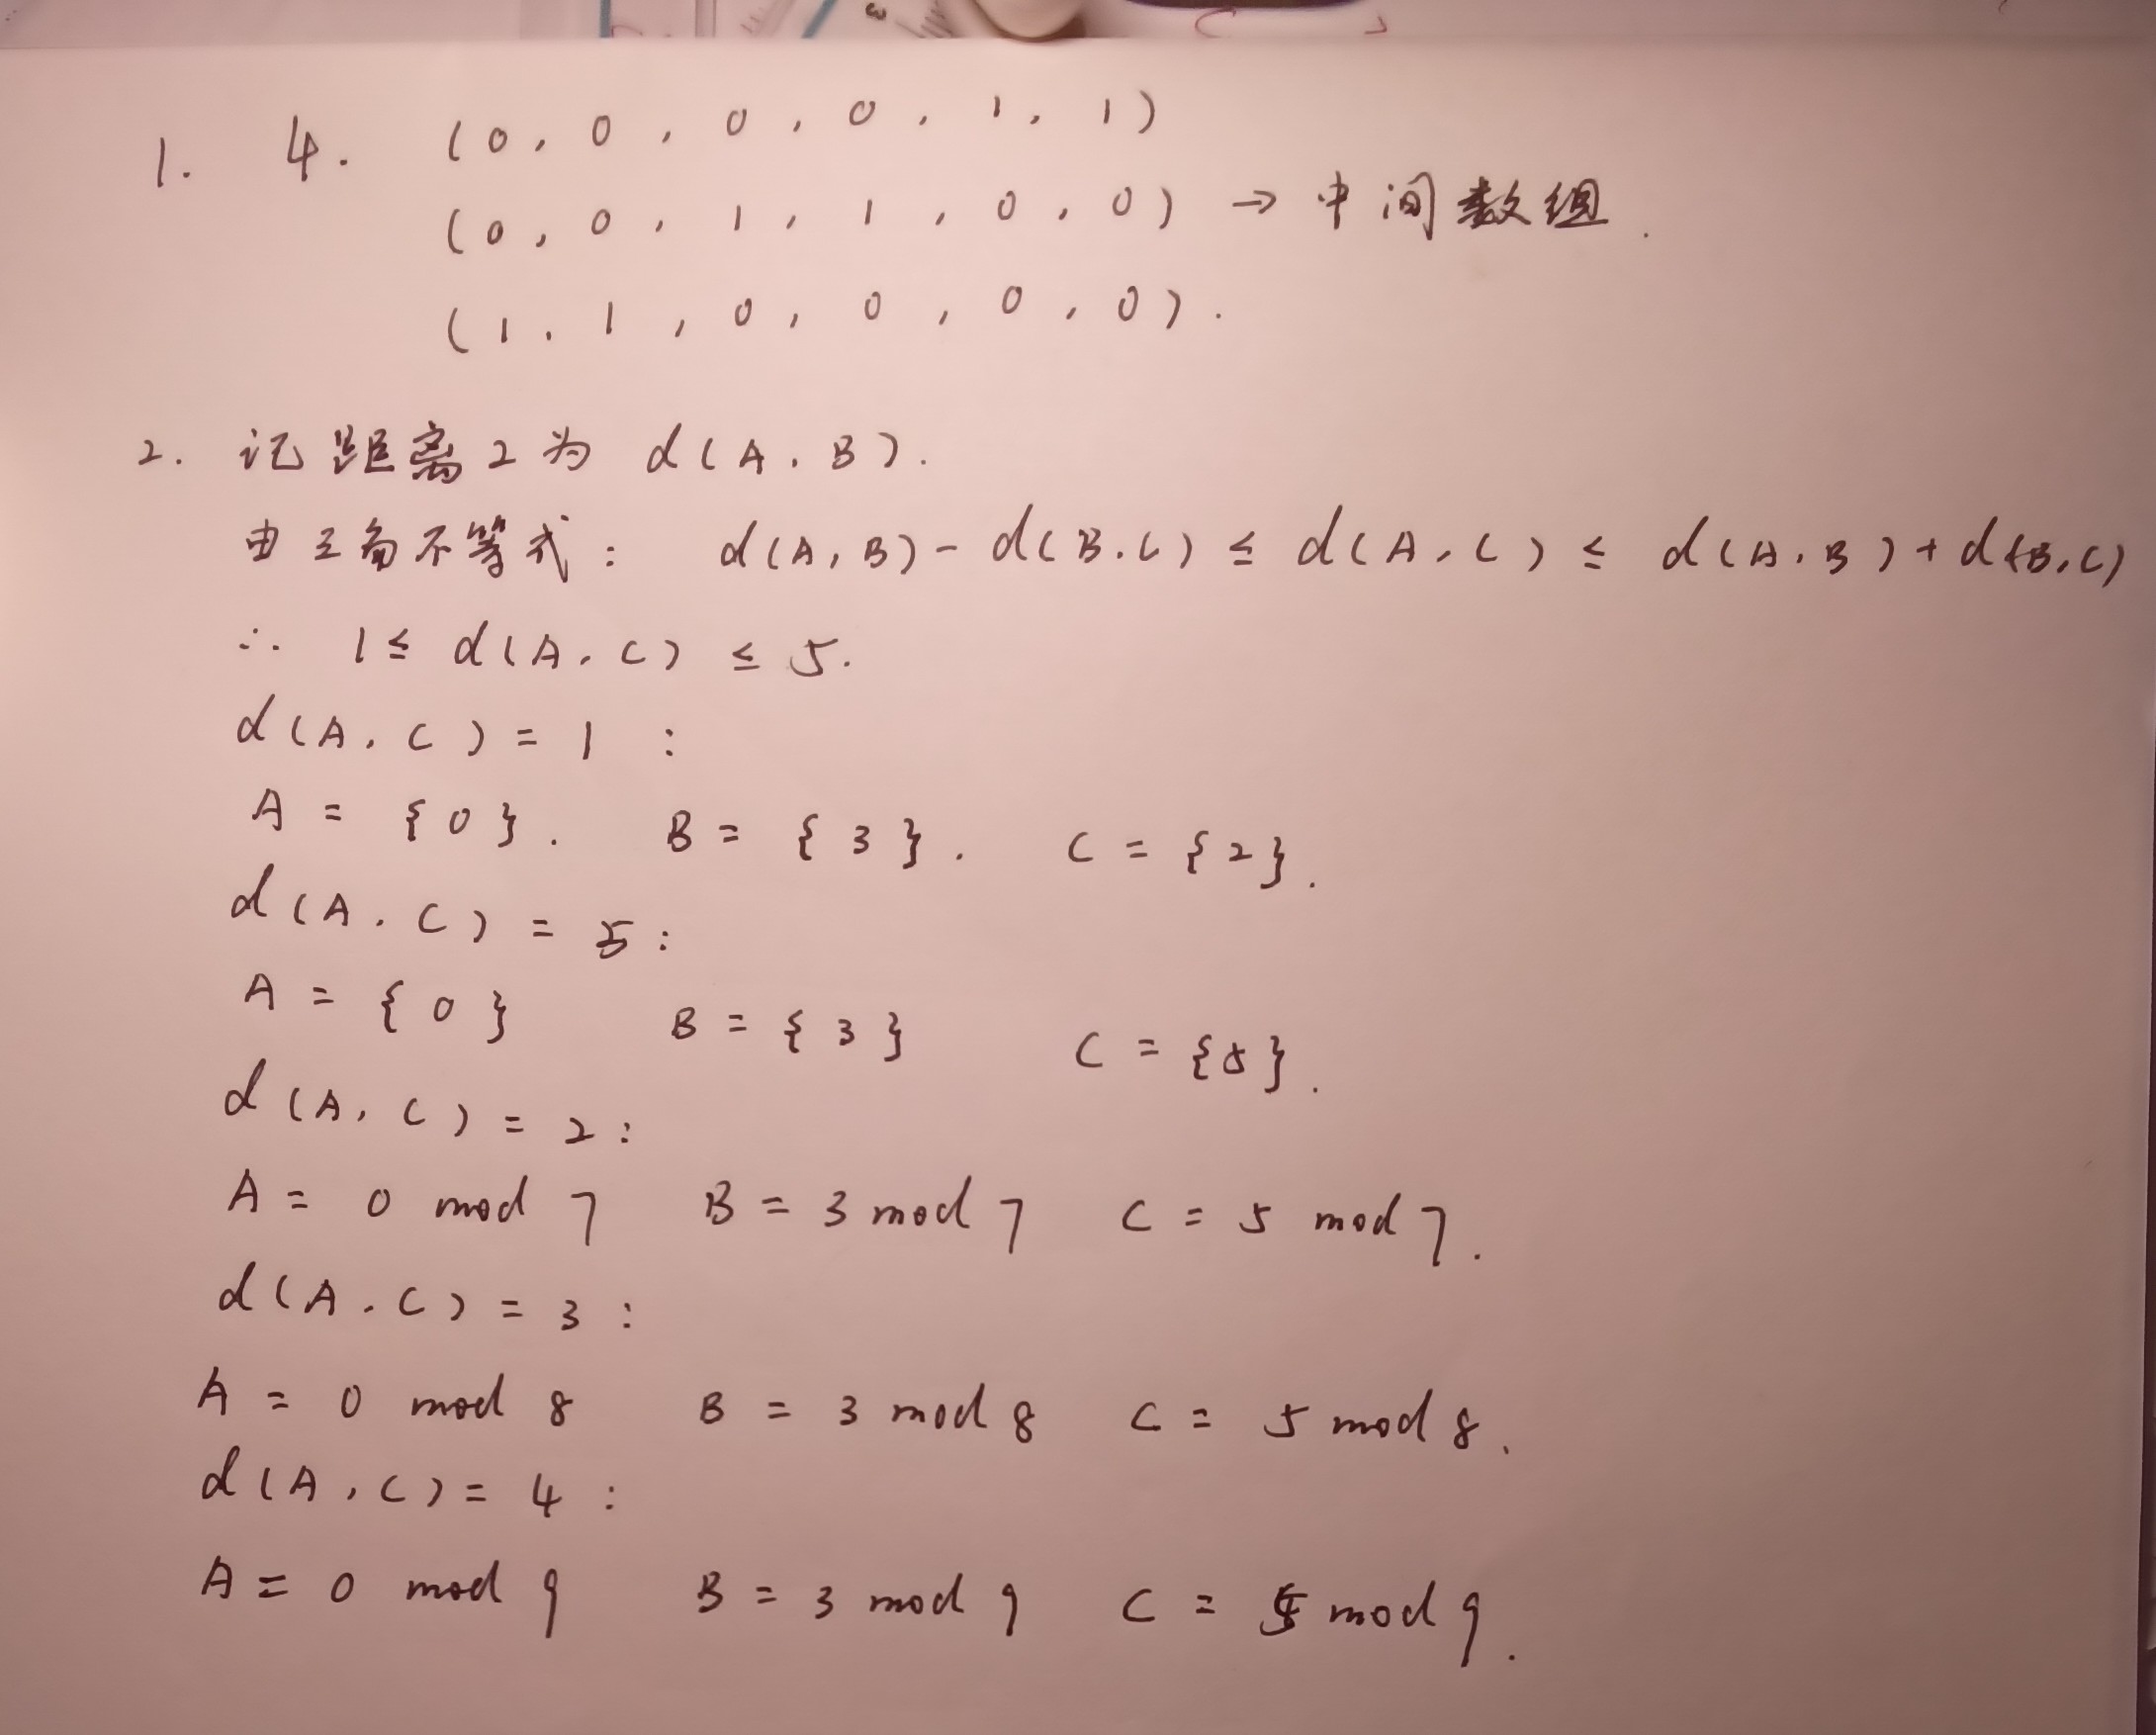 1. 4. (0, 0, 0, 0, 1, 1)
(0, 0, 1, 1, 0, 0) → 中间数组.
(1, 1, 0, 0, 0, 0).
2. 记距离2为 d(A, B).
由三角不等式: d(A, B) - d(B, C) ≤ d(A, C) ≤ d(A, B) + d(B, C)
∴ 1 ≤ d(A, C) ≤ 5.
d(A, C) = 1 :
A = {0}. B = {3}. C = {2}.
d(A, C) = 5 :
A = {0} B = {3} C = {5}.
d(A, C) = 2 :
A = 0 mod 7 B = 3 mod 7 C = 5 mod 7.
d(A, C) = 3 :
A = 0 mod 8 B = 3 mod 8 C = 5 mod 8.
d(A, C) = 4 :
A = 0 mod 9 B = 3 mod 9 C = 5 mod 9.